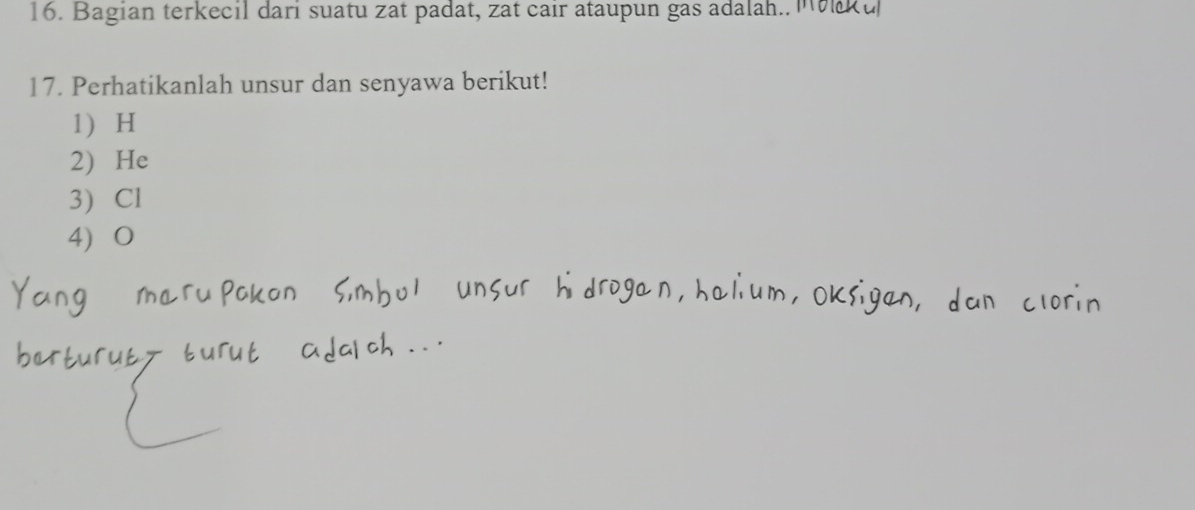 16. Bagian terkecil dari suatu zat padat, zat cair ataupun gas adalah.. molekul
17. Perhatikanlah unsur dan senyawa berikut!
1) H
2) He
3) Cl
4) O
Yang merupakan simbol unsur hidrogen, helium, oksigen, dan clorin
berturut-turut adalah ...